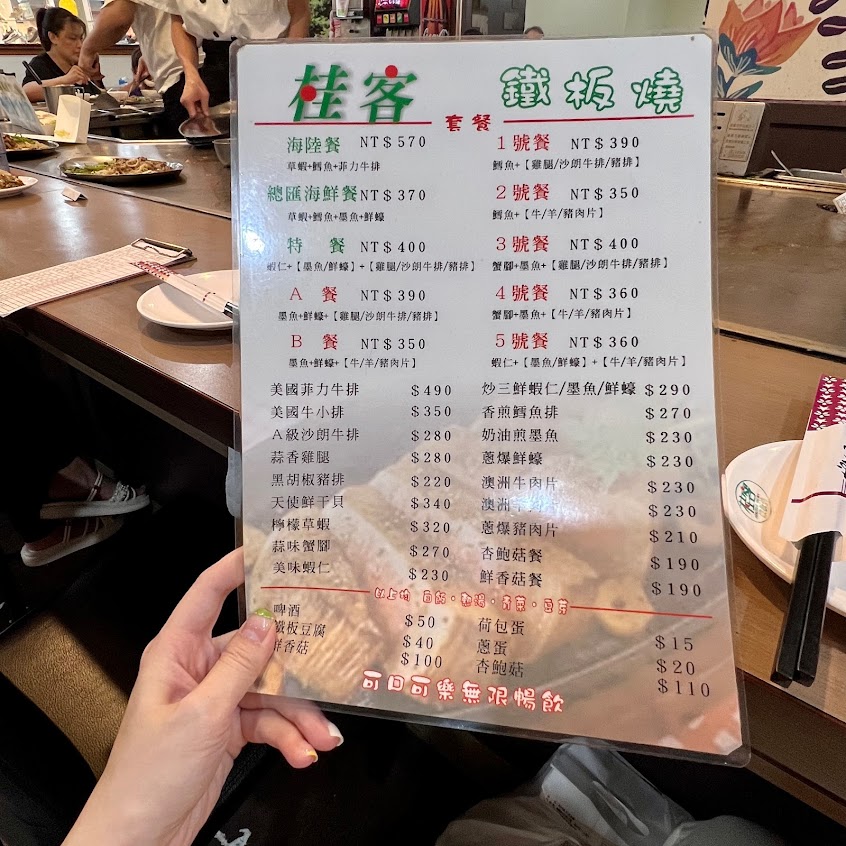 桂客 鐵板燒
套餐
海陸餐 NT$570
草蝦+鱈魚+菲力牛排
總匯海鮮餐 NT$370
草蝦+鱈魚+墨魚+鮮蠔
特 餐 NT$400
蝦仁+【墨魚/鮮蠔】+【雞腿/沙朗牛排/豬排】
A 餐 NT$390
墨魚+鮮蠔+【雞腿/沙朗牛排/豬排】
B 餐 NT$350
墨魚+鮮蠔+【牛/羊/豬肉片】
1號餐 NT$390
鱈魚+【雞腿/沙朗牛排/豬排】
2號餐 NT$350
鱈魚+【牛/羊/豬肉片】
3號餐 NT$400
蟹腳+墨魚+【雞腿/沙朗牛排/豬排】
4號餐 NT$360
蟹腳+墨魚+【牛/羊/豬肉片】
5號餐 NT$360
蝦仁+【墨魚/鮮蠔】+【牛/羊/豬肉片】
美國菲力牛排 $490
美國牛小排 $350
A級沙朗牛排 $280
蒜香雞腿 $280
黑胡椒豬排 $220
天使鮮干貝 $340
檸檬草蝦 $320
蒜味蟹腳 $270
美味蝦仁 $230
炒三鮮蝦仁/墨魚/鮮蠔 $290
香煎鱈魚排 $270
奶油煎墨魚 $230
蔥爆鮮蠔 $230
澳洲牛肉片 $230
澳洲 肉片 $230
蔥爆豬肉片 $210
杏鮑菇餐 $190
鮮香菇餐 $190
以上均 白飯·熱湯·青菜·豆芽
啤酒 $50
鐵板豆腐 $40
鮮香菇 $100
荷包蛋 $15
蔥蛋 $20
杏鮑菇 $110
可口可樂無限暢飲